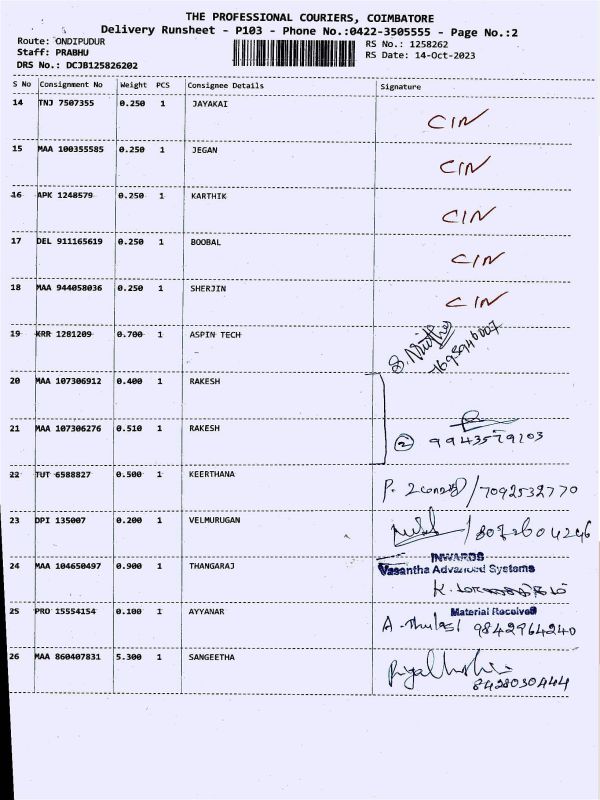 THE PROFESSIONAL COURIERS, COIMBATORE
Delivery Runsheet - P103 - Phone No.:0422-3505555 - Page No.:2
Route: ONDIPUDUR
RS No.: 1258262
Staff: PRABHU
RS Date: 14-Oct-2023
DRS No.: DCJB125826202
S No Consignment No Weight PCS Consignee Details Signature
14 TNJ 7507355 0.250 1 JAYAKAI CIN
15 MAA 100355585 0.250 1 JEGAN CIN
16 APK 1248579 0.250 1 KARTHIK CIN
17 DEL 911165619 0.250 1 BOOBAL CIN
18 MAA 944058036 0.250 1 SHERJIN CIN
19 KRR 1281209 0.700 1 ASPIN TECH
20 MAA 107306912 0.400 1 RAKESH
21 MAA 107306276 0.510 1 RAKESH 2 9943579203
22 TUT 6588827 0.500 1 KEERTHANA P. /7092532770
23 DPI 135007 0.200 1 VELMURUGAN /8072604246
24 MAA 104650497 0.900 1 THANGARAJ INWARDS
Vasantha Advanced Systems
K.
Material Received
25 PRO 15554154 0.100 1 AYYANAR A. Thulasi 9842964240
26 MAA 860407831 5.300 1 SANGEETHA
8428030444